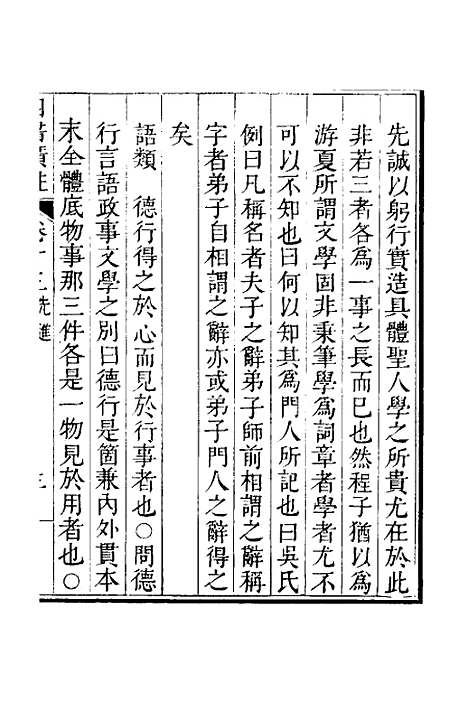 先誠以躬行實造具體聖人學之所貴尤在於此
非若三者各爲一事之長而已也然程子猶以爲
游夏所謂文學固非秉筆學爲詞章者學者尤不
可以不知也曰何以知其爲門人所記也曰吳氏
例曰凡稱名者夫子之辭弟子師前相謂之辭稱
字者弟子自相謂之辭亦或弟子門人之辭得之
矣
語類　德行得之於心而見於行事者也○問德
行言語政事文學之別曰德行是箇兼內外貫本
末全體底物事那三件各是一物見於用者也○
先進